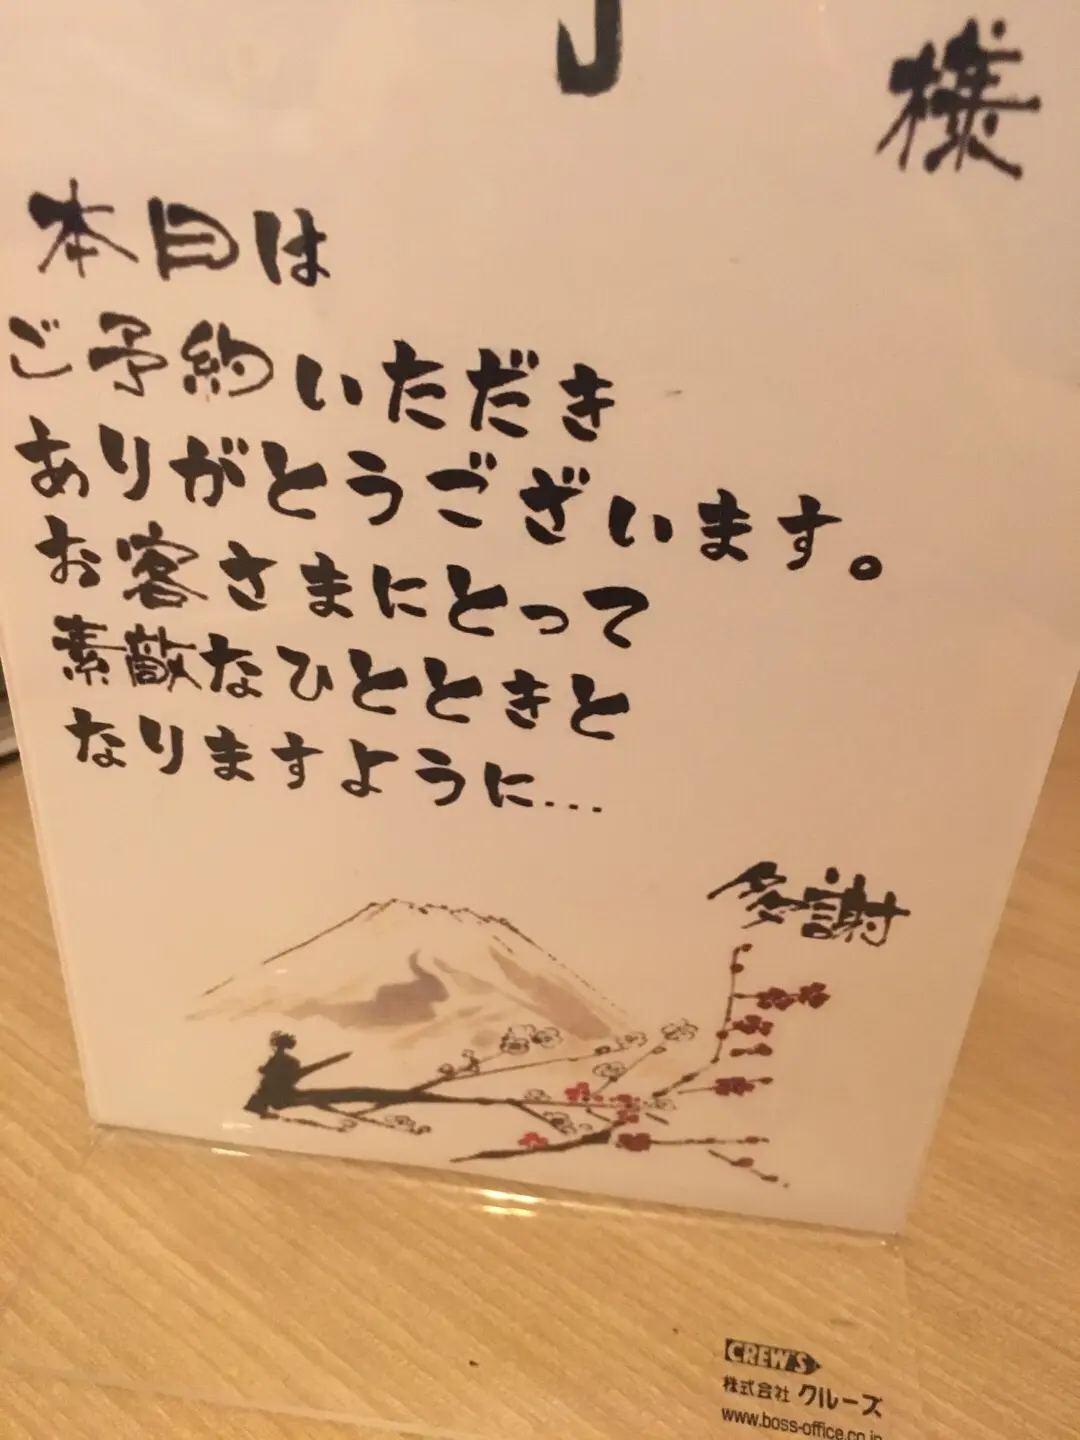 J 様
本日は
ご予約いただき
ありがとうございます。
お客さまにとって
素敵なひとときと
なりますように...
多謝
CREW'S
株式会社 クルーズ
www.boss-office.co.jp